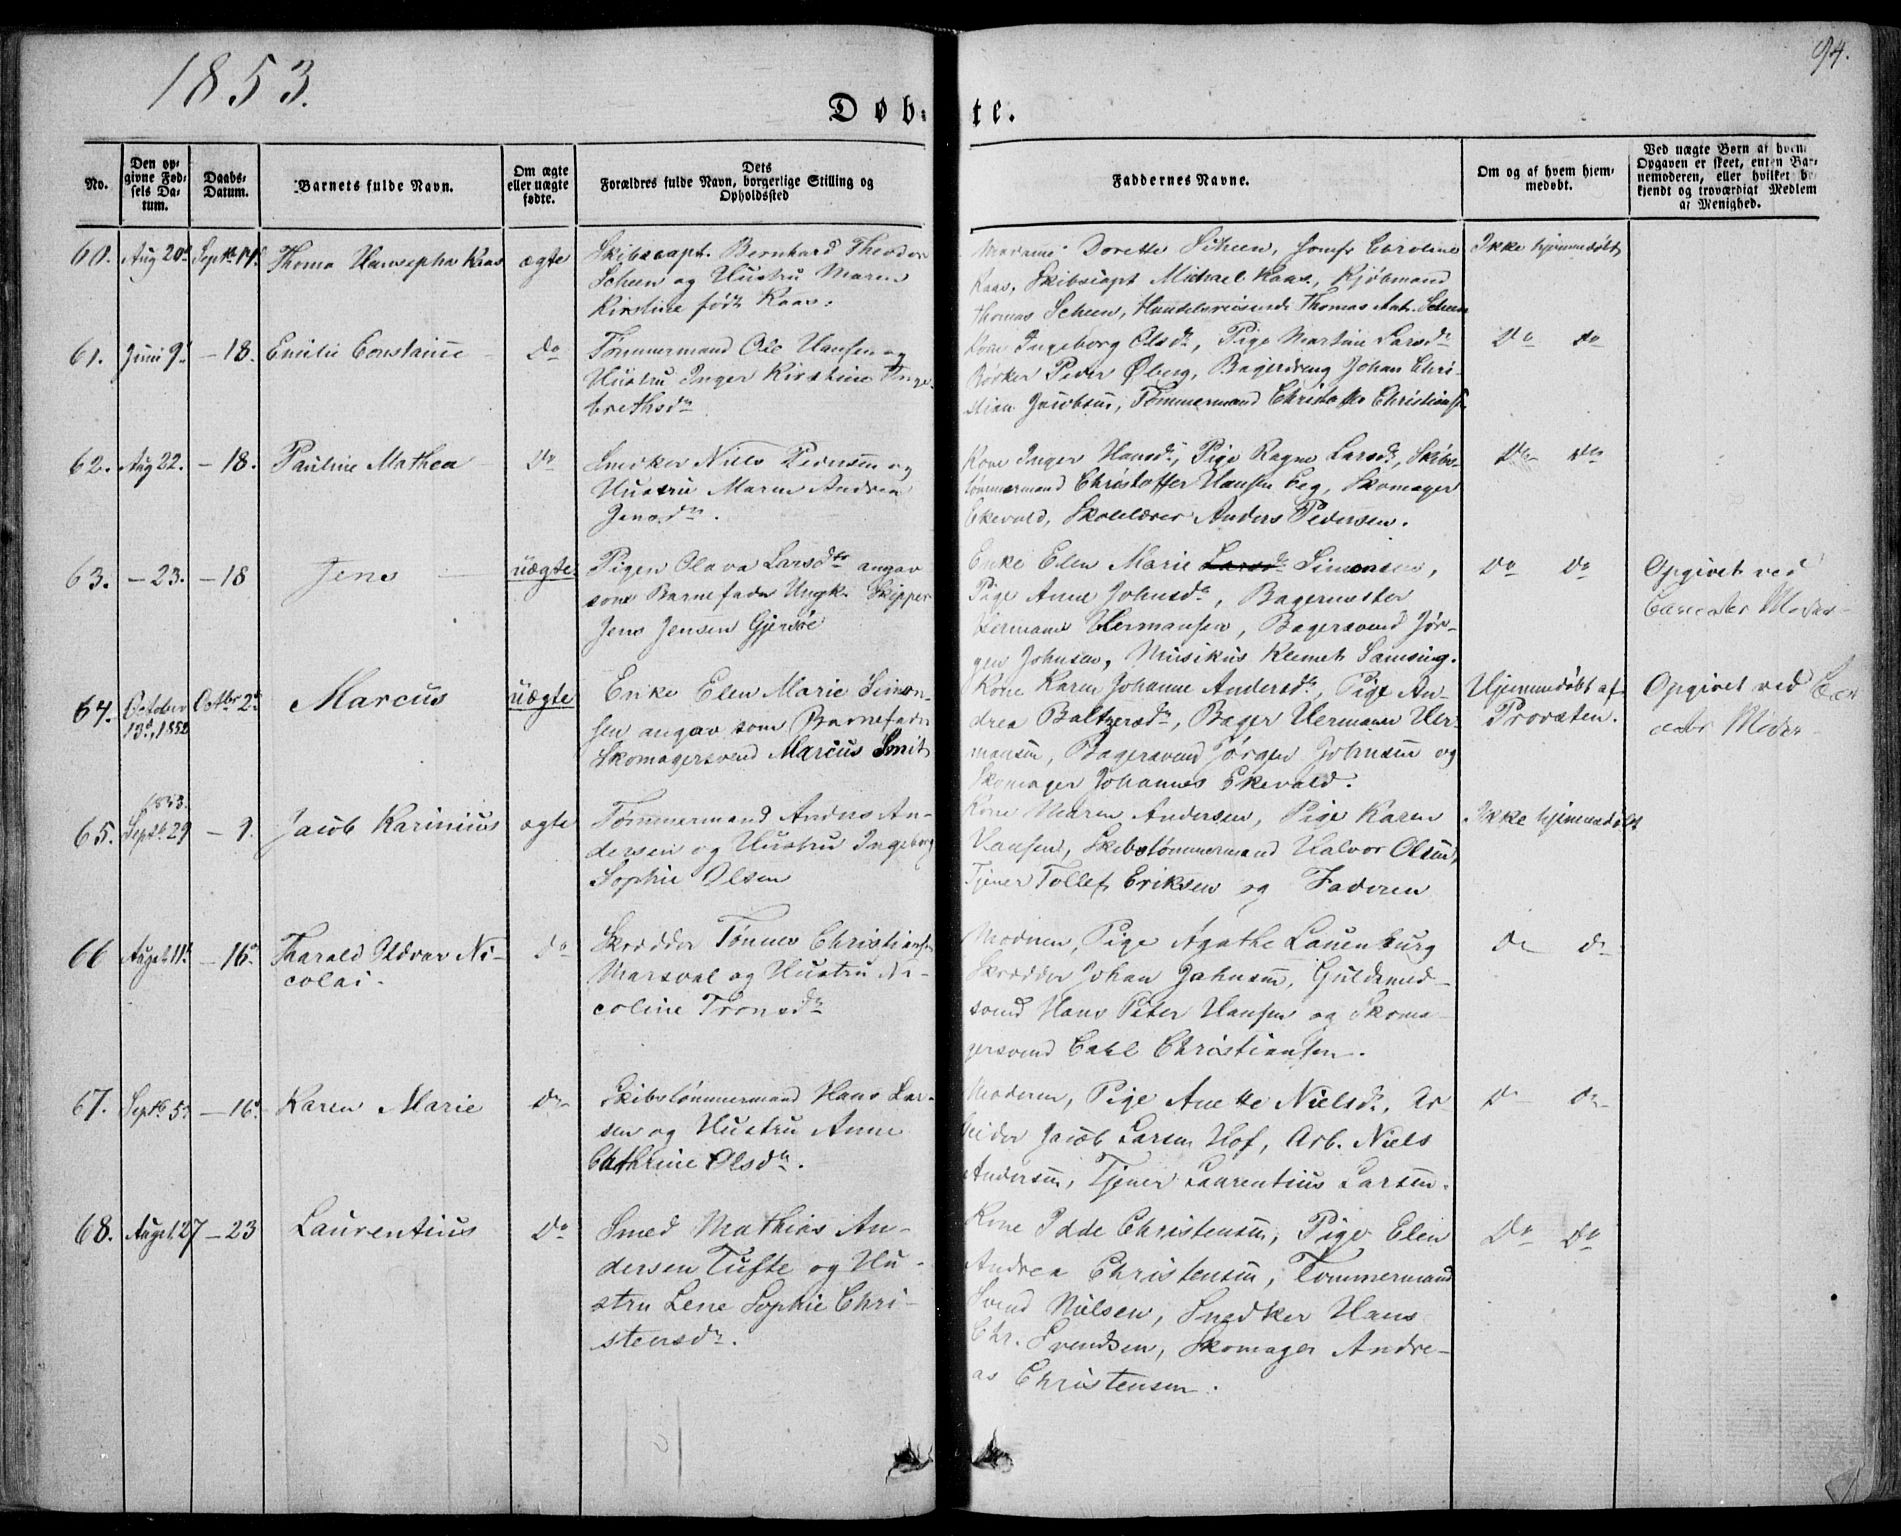 1853.
94.
Døb-te.
No.
Den op-
givne Fød-
sels Da-
tum.
Daabs-
Datum.
Barnets fulde Navn.
Om ægte
eller uægte
fødte.
Dets
Forældres fulde Navn, borgerlige Stilling og
Opholdssted
Faddernes Navne.
Om og af hvem hjem-
medøbt.
Ved uægte Børn af hvem
Opgaven er skeet, enten Bar-
nemoderen, eller hvilket be-
kjendt og troværdigt Medlem
af Menighed.
60. Aug 20d Septbr 14d Thoma Hansepha Kaas ægte
Skibscapt. Bernhard Theodor
Scheen og Hustru Maren
Kirstine født Kaas.
Madame Dorette Scheen, Jomfr Caroline
Kaas, Skibscapt Michael Kaas, Kjøbmand
Thomas Scheen, Handelsreisende Thomas Scheen
Ikke hjemmedøbt
61. Juni 9d - 18. Emilie Constance Do
Tømmermand Ole Hansen og
Hustru Inger Kirstine Inge-
brethsdr
Kone Ingeborg Olsdr, Pige Martine Larsdr
Bødker Peder Øberg, Bagerdreng Johan Chri-
stian Jacobsen, Tømmermand Christoffer Christians.
Do Do
62. Aug 22. - 18. Pauline Mathea Do
Snedker Niels Pedersen og
Hustru Maren Andrea
Jensdr.
Kone Inger Hansdr, Pige Ragne Larsdr, Skibs-
tømmermand Christoffer Hansen Eeg, Skomager
Ekevald, Skolelærer Anders Pedersen.
Do Do
63. - 23. - 18 Jens uægte
Pigen Olava Larsdtr angav
som Barnefader Ungk. Skipper
Jens Jensen Gjersøe
Enke Elen Marie Larsdr Simonsen,
Pige Anne Johnsdr, Bagermester
Hermann Hermansen, Bagersvend Jør-
gen Johnsen, Musikus Klemet Samsing.
Do Do
Opgivet ved
Barnets Moder
64. October
13d, 1852 Octbr 2d Marcus uægte
Enke Elen Marie Simon-
sen angav som Barnefader
Skomagersvend Marcus Smit
Kone Karen Johanne Andersdr, Pige An-
drea Baltzersdr, Bager Hermann Her-
mansen, Bagersvend Jørgen Johnsen og
Skomager Johannes Ekevald.
Hjemmedøbt af
Provsten.
Opgivet ved Bar-
nets Moder
65. 1853.
Septbr 29 - 9. Jacob Karinius ægte
Tømmermand Anders An-
dersen og Hustru Ingeborg
Sophie Olsen
Kone Maren Andersen, Pige Karen
Hansen, Skibstømmermand Halvor Olsen,
Tjener Tollef Eriksen og Faderen
Ikke hjemmedøbt
66 Augst 11d - 16d Tharald Hdvar Ni-
colai. Do
Skrædder Tønnes Christiansen
Marsval og Hustru Ni-
coline Tronsdr
Moderen, Pige Agathe Lauenburg
Skrædder Johan Johnsen, Guldsmed-
svend Hans Peter Hansen og Skoma-
gersvend Carl Christiansen.
Do Do
67. Septbr 5d - 16d Karen Marie Do
Skibstømmermand Hans Lar-
sen og Hustru Anne
Cathrine Olsdr.
Moderen, Pige Anette Nielsdr, Ar-
beider Jacob Larsen Hof, Arb. Niels
Andersen, Tjener Laurentius Larsen.
Do Do
68. Augst 27 - 23 Laurentius Do
Smed Mathias An-
dersen Tufte og Hu-
stru Lene Sophie Chri-
stensdr.
Kone Idde Christensen, Pige Elen
Andrea Christensen, Tømmermand
Svend Nielsen, Snedker Hans
Chr. Svendsen, Skomager Andre-
as Christensen.
Do Do